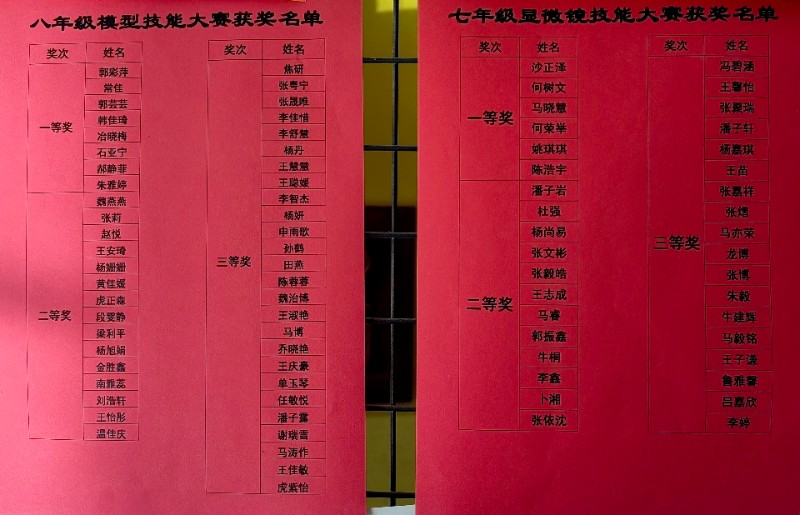 八年级模型技能大赛获奖名单
奖次 姓名
一等奖
郭彩萍
常佳
郭芸芸
韩佳琦
冶晓梅
石亚宁
郝静菲
朱雅婷
二等奖
魏燕燕
张莉
赵悦
王安琦
杨姗姗
黄佳媛
虎正森
段雯静
梁利平
杨旭娟
金胜鑫
南雅蕊
刘浩轩
王怡彤
温佳庆
奖次 姓名
三等奖
焦研
张粤宁
张晟唯
李佳惜
李舒慧
杨丹
王慧慧
王聪媛
李智杰
杨妍
申雨歌
孙鹤
田燕
陈蓉蓉
魏治博
王淑艳
马博
乔晓艳
王庆豪
单玉琴
任敏悦
潘子露
谢瑞雪
马涛作
王佳敏
虎紫怡
七年级显微镜技能大赛获奖名单
奖次 姓名
一等奖
沙正泽
何树文
马晓慧
何荣举
姚琪琪
陈浩宇
二等奖
潘子岩
杜强
杨尚易
张文彬
张毅皓
王志成
马睿
郭振鑫
牛桐
李鑫
卜湘
张依沈
奖次 姓名
三等奖
冯碧涵
王馨怡
张聚瑞
潘子轩
杨嘉琪
王苗
张嘉祥
张熠
马亦荣
龙博
张博
朱毅
牛建辉
马毅铭
王子谦
鲁雅馨
吕嘉欣
李婷